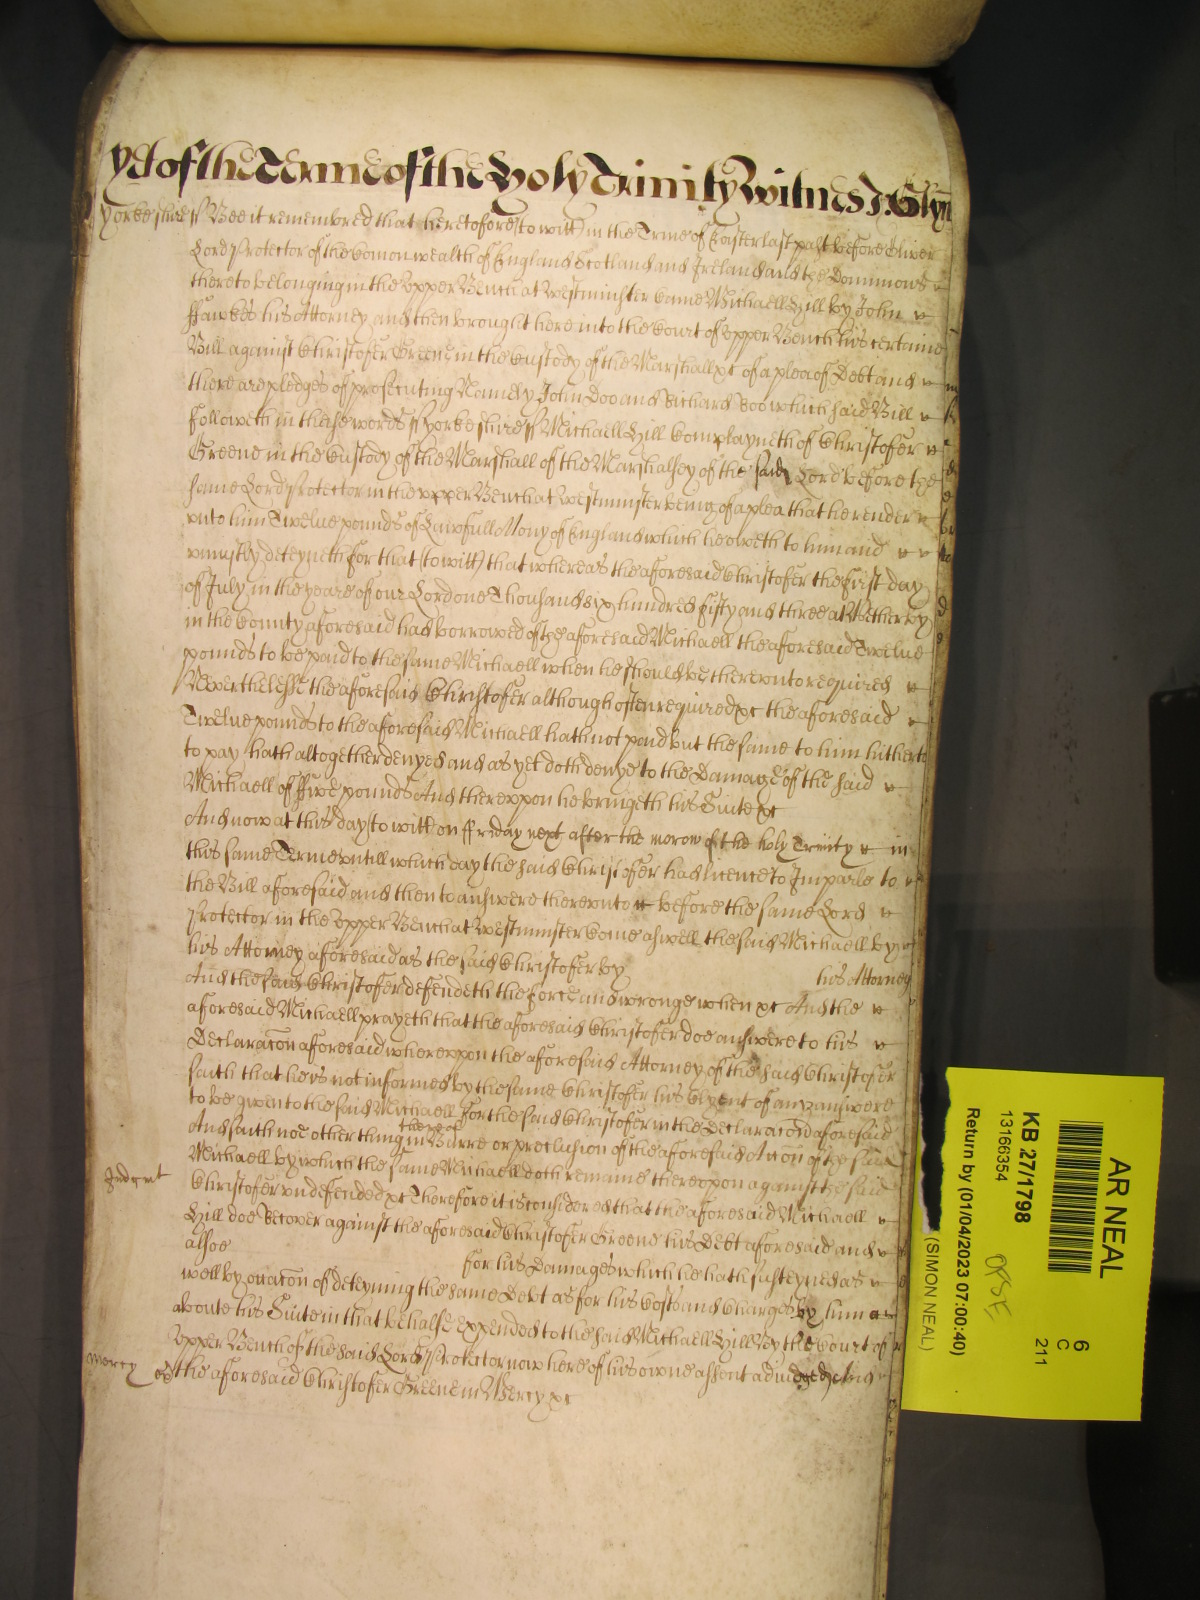 yet of the Terme of the Holy Trinity Witnes J: Glyn
Yorkeshire ss Bee it remembred that heretofore (to witt) in the Terme of Easter last past before Oliver
Lord Protector of the Comonwealth of England Scotland and Ireland and the Dominions
thereto belonging in the Upper Bench at Westminster came Michaell Hill by John
ffawkes his Attorney and then brought here into the Court of Upper Bench his certaine
Bill against Christofer Greene in the Custody of the Marshall xc of a plea of Debt and
there are pledges of prosecuting Namely John Doo and Richard Roo which said Bill
followeth in these words ss Yorkeshire ss Michaell Hill Complayneth of Christofer
Greene in the Custody of the Marshall of the Marshalsey of the said Lord before the
same Lord Protector in the upper Bench at Westminster being of a plea that he render
unto him Twelve pounds of Lawfull Mony of England which he oweth to him and
uniustly deteyneth for that (to witt) that whereas the aforesaid Christofer the first day
of July in the yeare of our Lord one Thousand six hundred fifty and three at Wetherby
in the County aforesaid had borrowed of the aforesaid Michaell the aforesaid Twelve
pounds to be paid to the same Michaell when he should be thereunto required
Neverthelesse the aforesaid Christofer although often required xc the aforesaid
Twelve pounds to the aforesaid Michaell hath not paid but the same to him hitherto
to pay hath altogether denyed and as yet doth denye to the Damage of the said
Michaell of ffive pounds And thereuppon he bringeth his Suite xc
And now at this day to witt on ffriday next after the morow of the holy Trinity in
this same Terme untill which day the said Christofer had licence to Imparle to
the Bill aforesaid and then to answere thereunto before the same Lord
Protector in the Upper Bench at Westminster come aswell the said Michaell by
his Attorney aforesaid as the said Christofer by his Attorney
And the said Christofer defendeth the force and wronge when xc And the
aforesaid Michaell prayeth that the aforesaid Christofer doe answere to his
Declaracon aforesaid whereuppon the aforesaid Attorney of the said Christofer
saith that he is not informed by the same Christofer his Clyent of any answere
to be given to the said Michaell for the said Christofer in the Declaracon aforesaid
And saith noe other thing in Barre or preclusion thereof of the aforesaid Accon of the said
Michaell by which the same Michaell doth remaine thereuppon against the said
Judgmt Christofer undefended xc Therefore it is considered that the aforesaid Michaell
Hill doe Recover against the aforesaid Christofer Greene his Debt aforesaid and
alsoe for his Damages which he hath susteyned as
well by occacon of deteyning the same Debt as for his Costs and Charges by him
about his Suite in that behalfe expended to the said Michaell Hill By the Court of
Upper Bench of the said Lord Protector now here of his owne assent adiudged And
Mercy the aforesaid Christofer Greene in Mercy xc
AR NEAL
KB 27/1798
13166354
Return by (01/04/2023 07:00:40)
(SIMON NEAL)
6
C
211